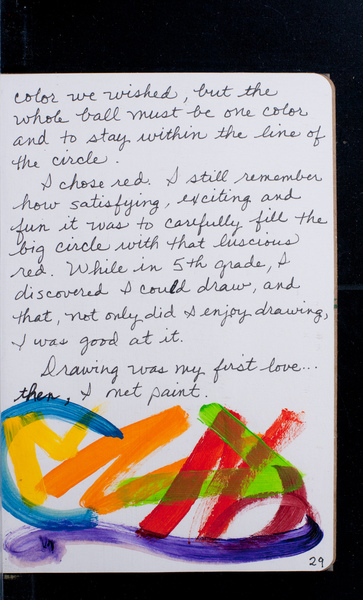 color we wished, but the
whole ball must be one color
and to stay within the line of
the circle.
I chose red. I still remember
how satisfying, exciting and
fun it was to carefully fill the
big circle with that luscious
red. While in 5th grade, I
discovered I could draw, and
that, not only did I enjoy drawing,
I was good at it.
Drawing was my first love...
then, I met paint.
29